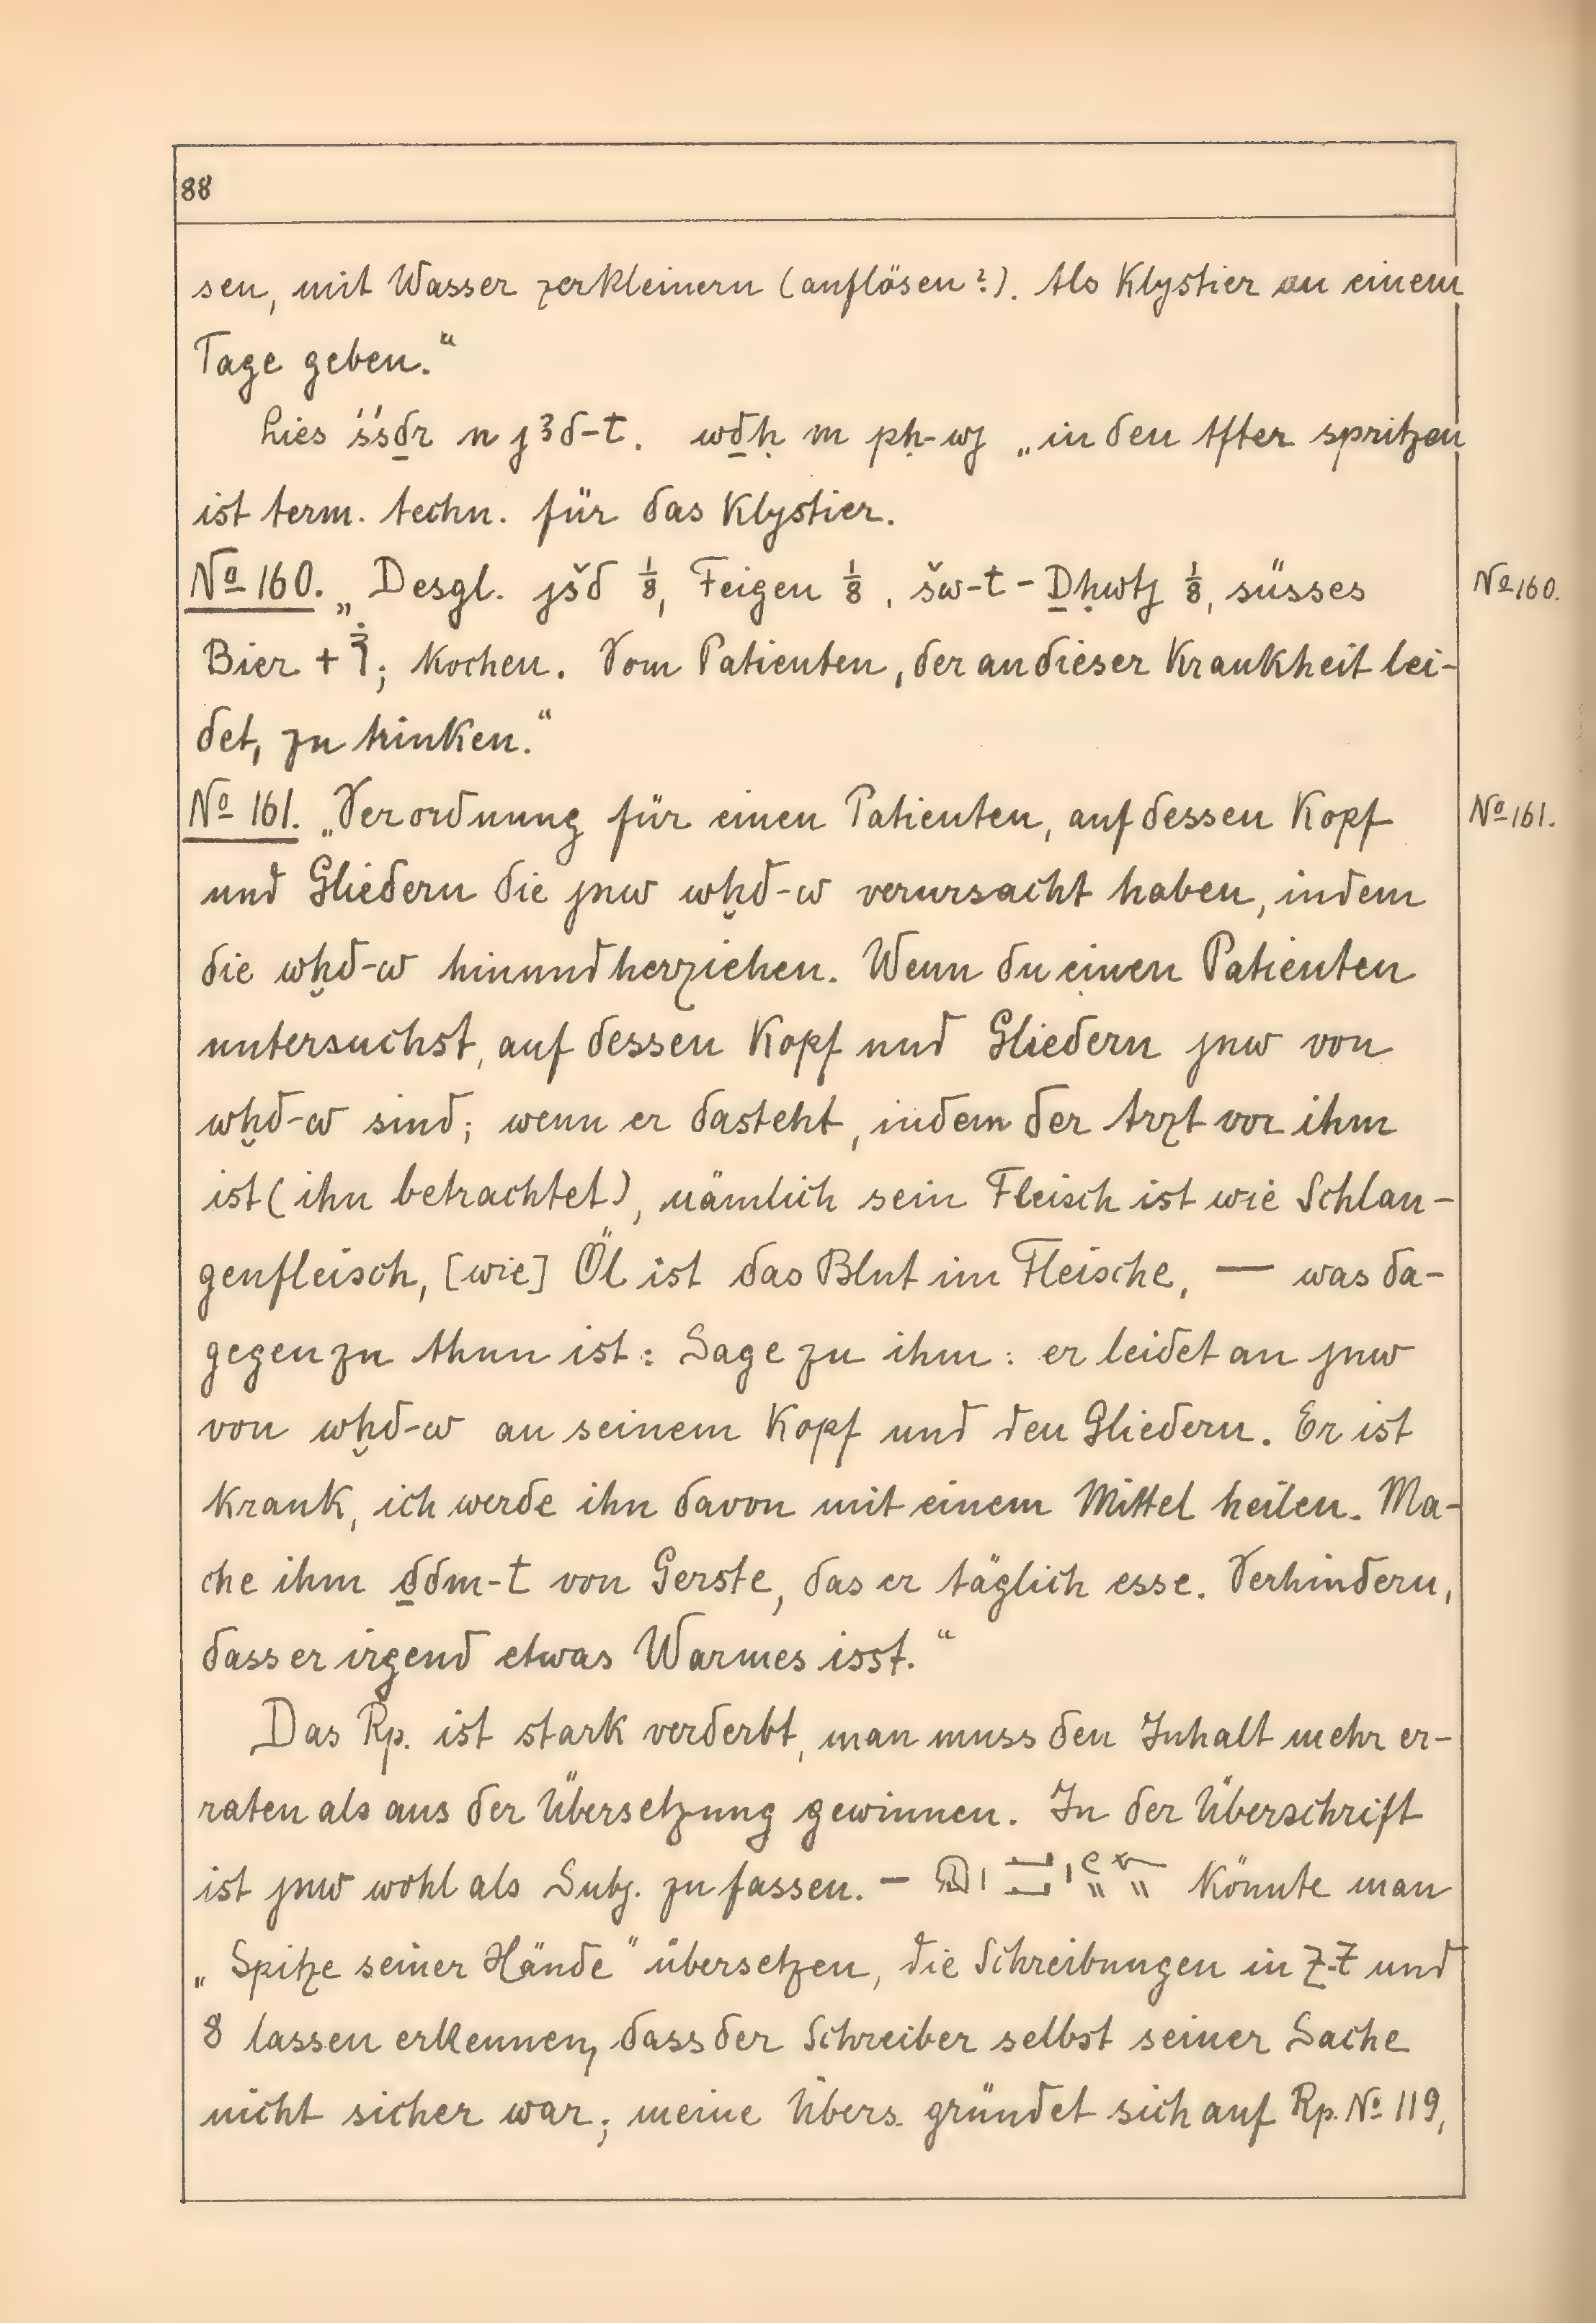 88
sen, mit Wasser zerkleinern (auflösen?). Als Klystier an einem
Tage geben.“
Lies śśḏr n j3d-t. wdḥ m pḥ-wj „in den After spritzen
ist term. techn. für das Klystier.
No 160. „Desgl. jšd 1/8, Feigen 1/8, šw-t-Ḏḥwtj 1/8, süsses
Bier + ; kochen. Vom Patienten, der an dieser Krankheit lei-
det, zu trinken.“
No 160.
No 161. „Verordnung für einen Patienten, auf dessen Kopf
und Gliedern die jnw wḫd-w verursacht haben, indem
die wḫd-w hinundherziehen. Wenn du einen Patienten
untersuchst, auf dessen Kopf und Gliedern jnw von
wḫd-w sind; wenn er dasteht, indem der Arzt vor ihm
ist (ihn betrachtet), nämlich sein Fleisch ist wie Schlan-
genfleisch, [wie] Öl ist das Blut im Fleische, — was da-
gegen zu thun ist: Sage zu ihm: er leidet an jnw
von wḫd-w an seinem Kopf und den Gliedern. Er ist
krank, ich werde ihn davon mit einem Mittel heilen. Ma-
che ihm ḏdm-t von Gerste, das er täglich esse. Verhindern,
dass er irgend etwas Warmes isst.“
No 161.
Das Rp. ist stark verderbt, man muss den Inhalt mehr er-
raten als aus der Übersetzung gewinnen. In der Überschrift
ist jnw wohl als Subj. zu fassen. — könnte man
„Spitze seiner Hände“ übersetzen, die Schreibungen in Z. 7 und
8 lassen erkennen, dass der Schreiber selbst seiner Sache
nicht sicher war; meine Übers. gründet sich auf Rp. No 119,